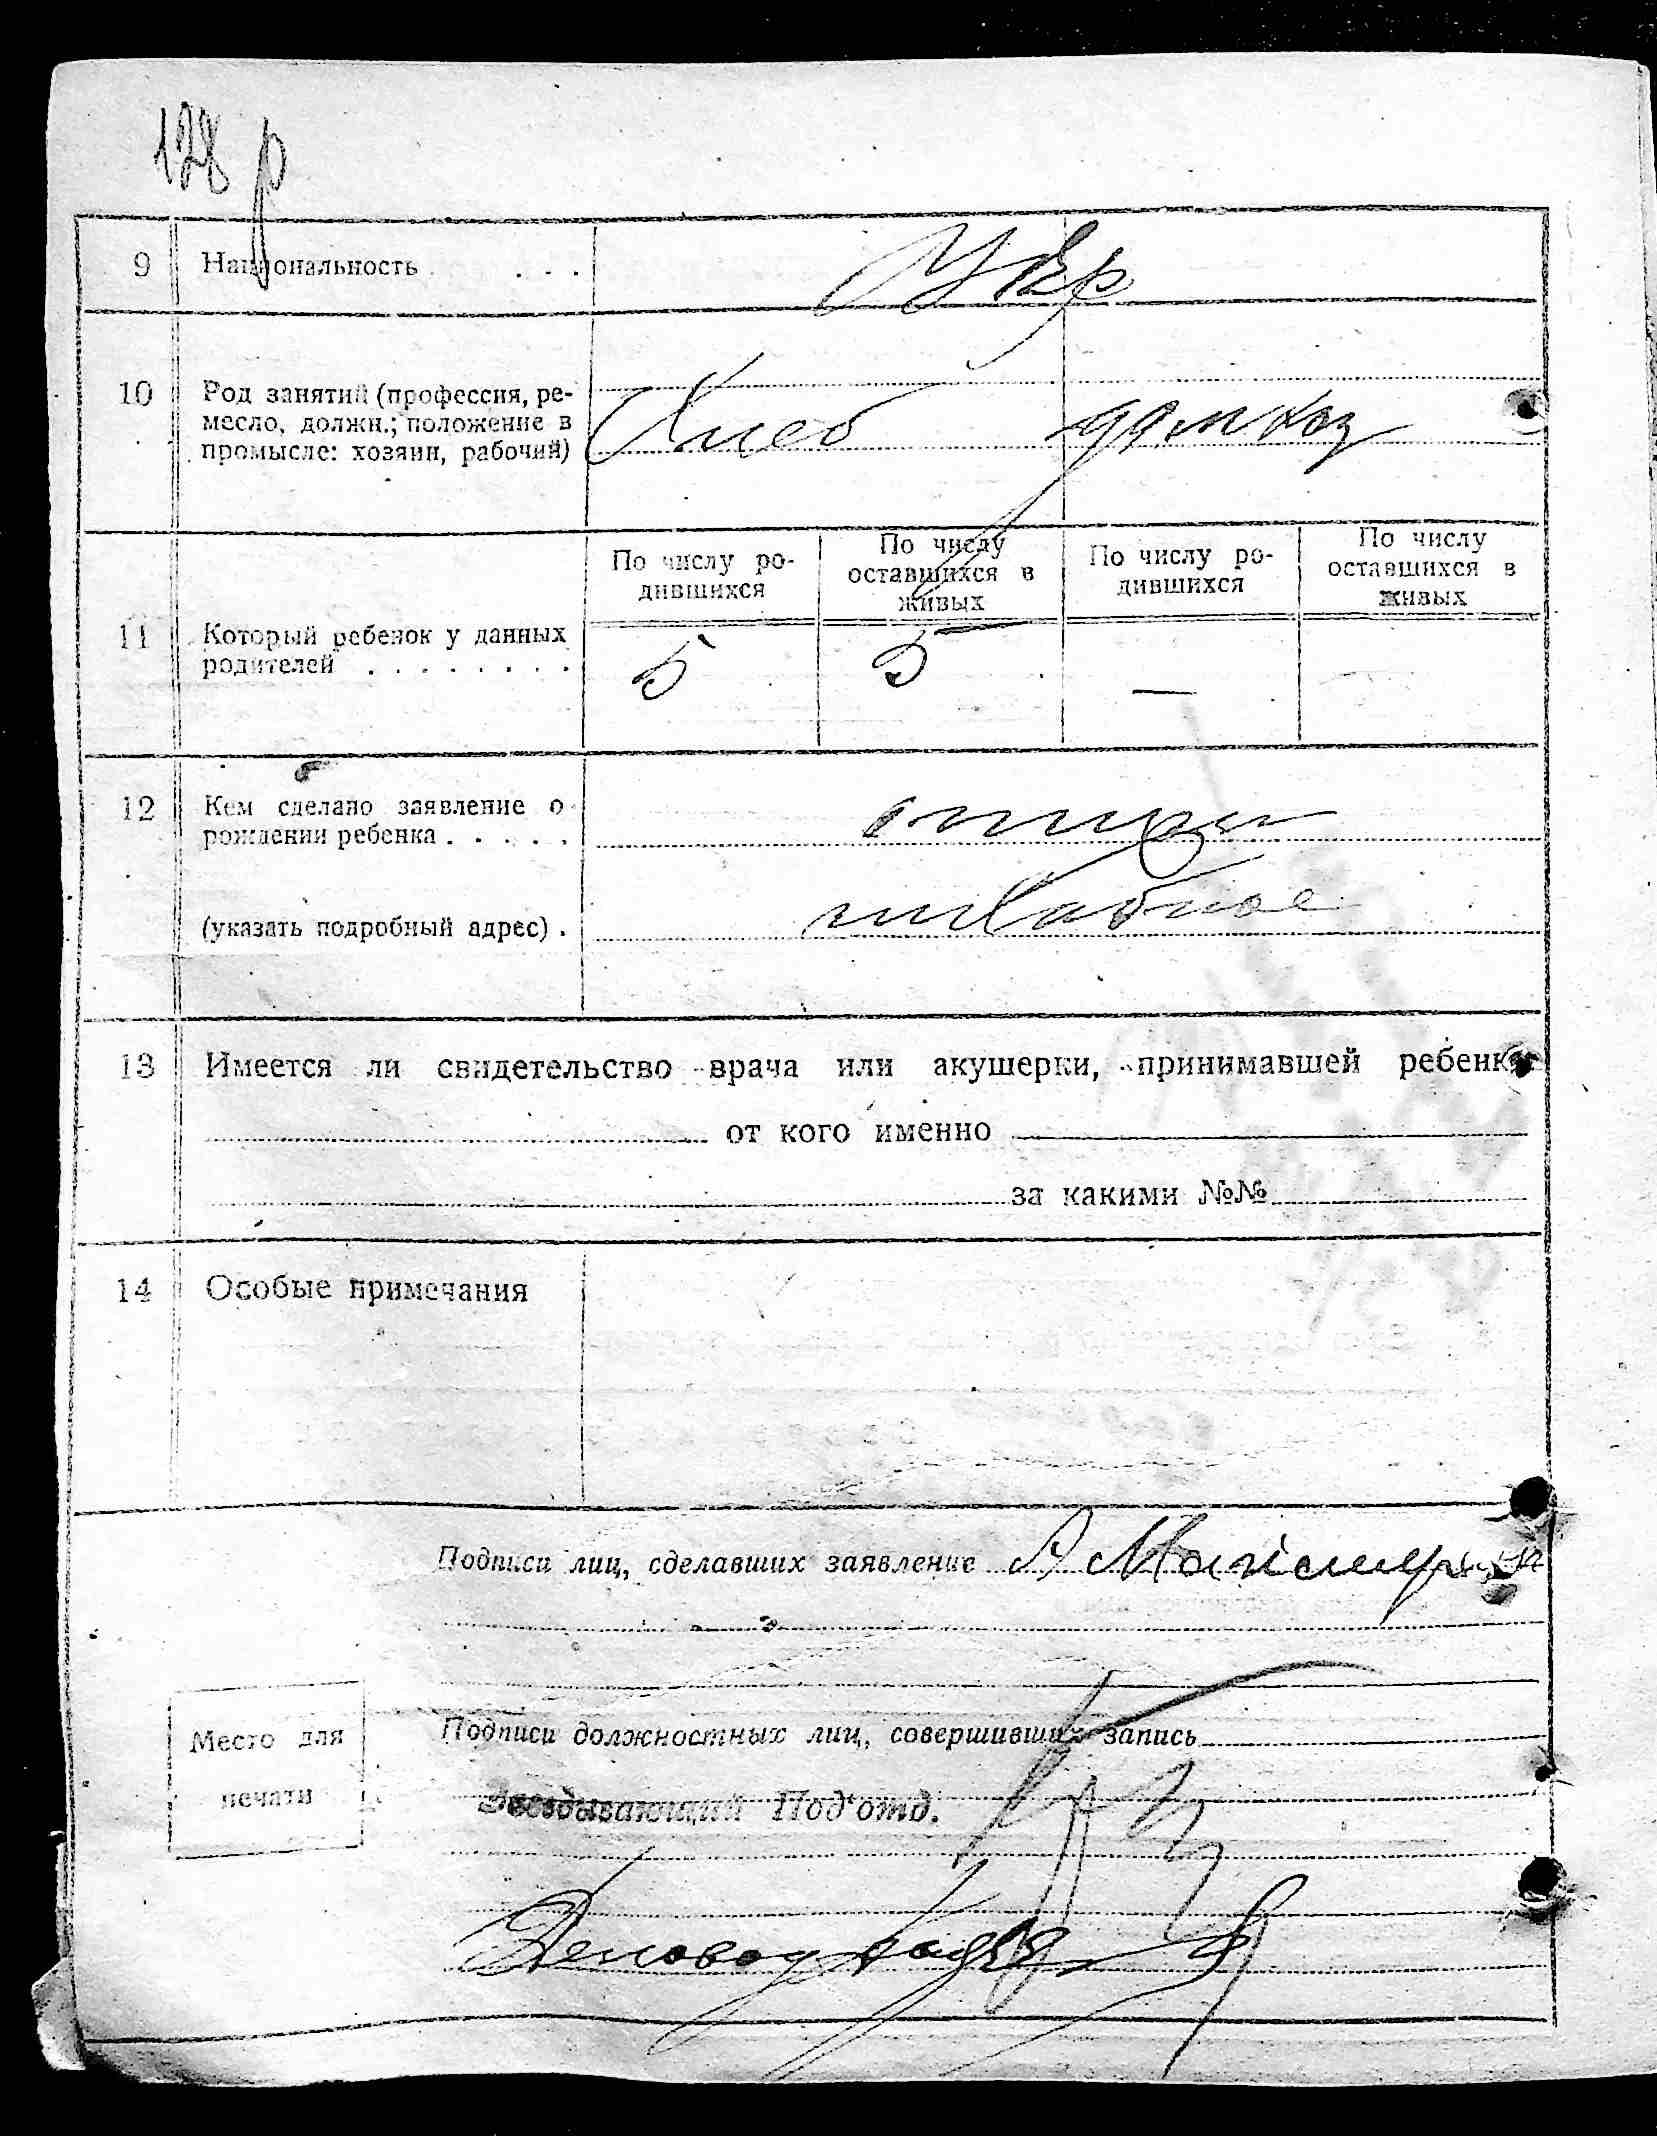 128 р
9 Национальность . . . Укр
10 Род занятий (профессия, ре-
месло, должн.; положение в
промысле: хозяин, рабочий)
Хлеб домхоз
По числу ро-
дившихся
По числу
оставшихся в
живых
По числу ро-
дившихся
По числу
оставшихся в
живых
11 Который ребенок у данных
родителей . . . . . . . .
5 5 —
12 Кем сделано заявление о
рождении ребенка . . . . .
отцом
(указать подробный адрес) .
13 Имеется ли свидетельство врача или акушерки, принимавшей ребенка
от кого именно
за какими №№
14 Особые примечания
Подписи лиц, сделавших заявление
Место для
печати
Подписи должностных лиц, совершивших запись
Заведывающий Под'отд.
Деловод